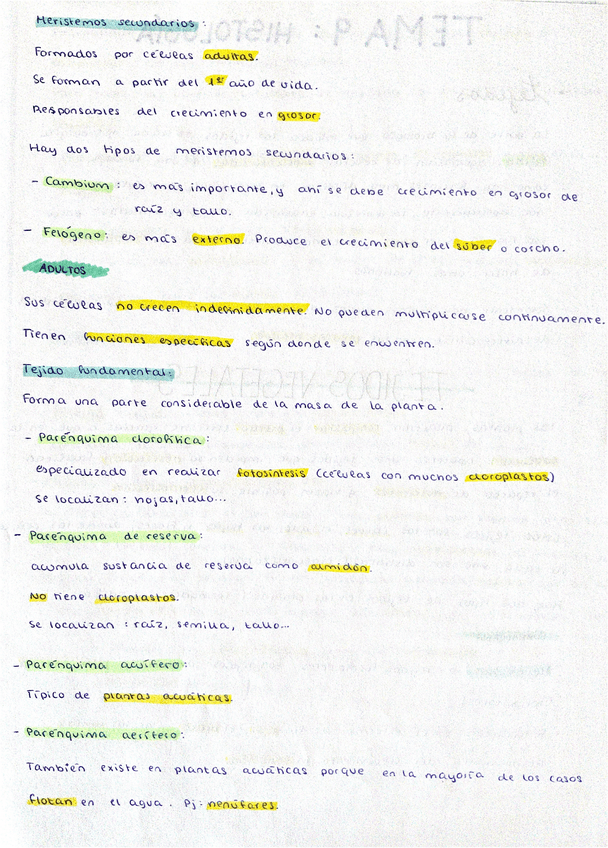 Meristemos secundarios:
Formados por células adultas.
Se forman a partir del 1er año de vida.
Responsables del crecimiento en grosor.
Hay dos tipos de meristemos secundarios:
- Cambium: es más importante, y ahí se debe crecimiento en grosor de
raíz y tallo.
- Felógeno: es más externo. Produce el crecimiento del súber o corcho.
ADULTOS
Sus células no crecen indefinidamente. No pueden multiplicarse continuamente.
Tienen funciones específicas según donde se encuentren.
Tejido fundamental:
Forma una parte considerable de la masa de la planta.
- Parénquima clorofílica:
especializado en realizar fotosíntesis (células con muchos cloroplastos)
se localizan: hojas, tallo...
- Parénquima de reserva:
acumula sustancia de reserva como almidón.
No tiene cloroplastos.
se localizan: raíz, semilla, tallo...
- Parénquima acuífero:
Típico de plantas acuáticas.
- Parénquima aerífero:
También existe en plantas acuáticas porque en la mayoría de los casos
flotan en el agua. Pj: nenúfares.